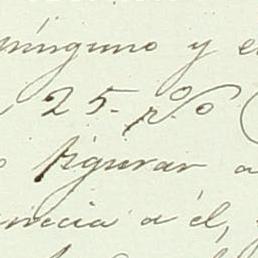 ninguno y e
25. p%
figurar a
encia a él,